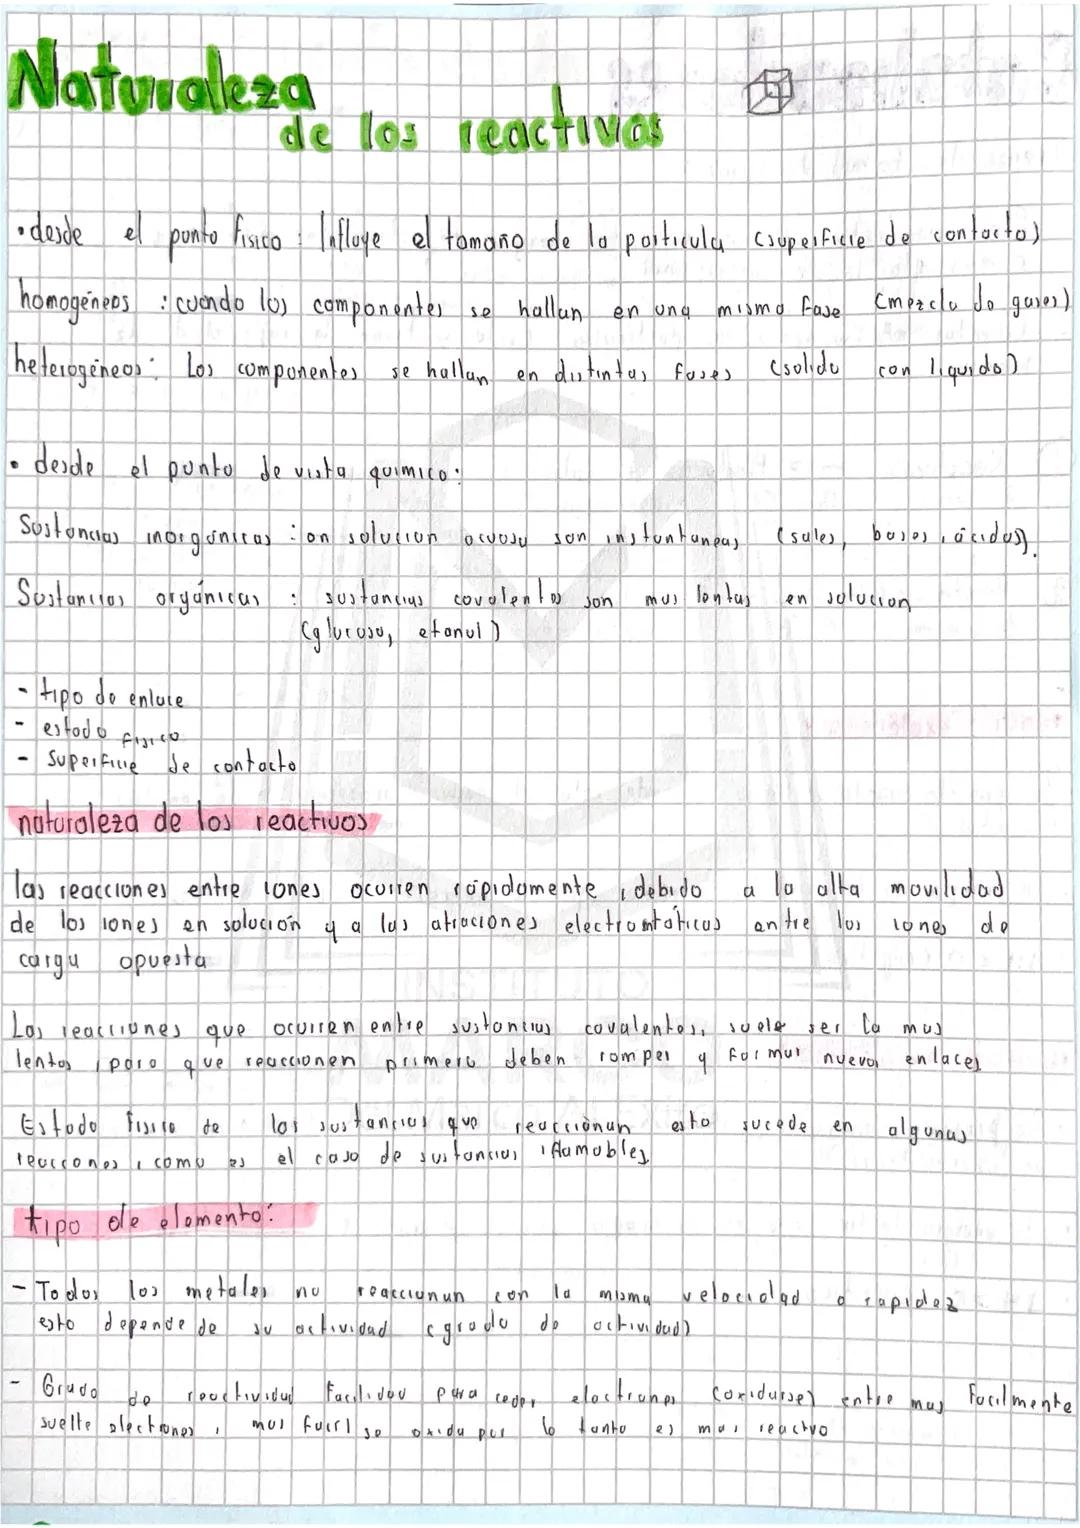 Naturaleza
de los reactivos
• desde el punto fisico : Influye el tamaño de la particula (superficie de contacto)
homogéneos : cuando los componentes se hallan en una misma fase (mezcla de gases)
heterogéneos : Los componentes se hallan en distintas fases (solido con liquido)
• desde el punto de vista quimico :
Sustancias inorgánicas : en solucion acuosa son instantaneas (sales, bases, ácidos).
Sustancias orgánicas : sustancias covalentes son mas lentas en solucion
(glucosa, etanol)
- tipo de enlace
- estado fisico
- Superficie de contacto
naturaleza de los reactivos
las reacciones entre iones ocurren rápidamente, debido a la alta movilidad
de los iones en solución y a las atracciones electrostáticas entre los iones de
carga opuesta
Las reacciones que ocurren entre sustancias covalentes, suele ser la mas
lentas, para que reaccionen primero deben romper y formar nuevos enlaces
Estado fisico de las sustancias que reaccionan esto sucede en algunas
reaccones, como es el caso de sustancias iflamables
tipo de elemento:
- Todos los metales no reaccionan con la misma velocidad o rapidez
esto depende de su actividad (grado de actividad)
- Grado de reactividad facilidad para ceder electrones (oxidarse) entre mas facilmente
suelte electrones, mas facil se oxida por lo tanto es mas reactvo